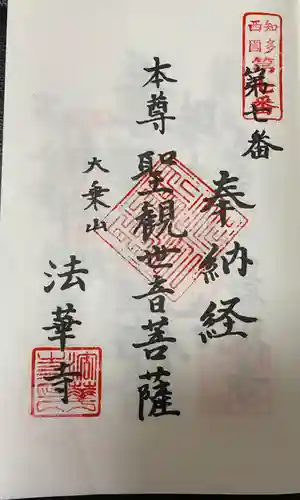 知多
西国
第七番
第七番
奉納経
本尊 聖観世音菩薩
大乗山
法華寺